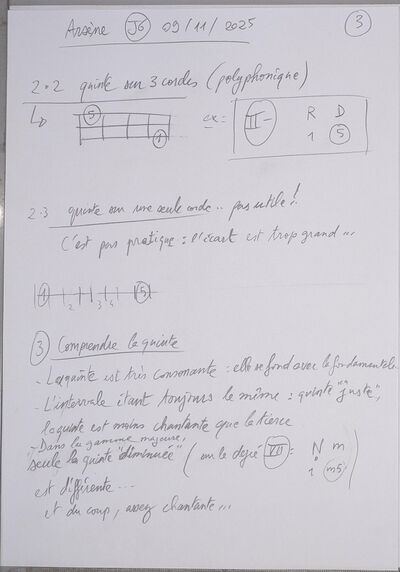 Arsène J6 09/11/2025 3
2.2 quinte sur 3 cordes (polyphonique)
5 1
ex = II- R D
1 5
2.3 quinte sur une seule corde .. pas utile !
C'est pas pratique : l'écart est trop grand ...
1 2 3 4 5
3 Comprendre la quinte
- La quinte est très consonante : elle se fond avec la fondamentale
- L'intervalle étant toujours le même : quinte "juste",
la quinte est moins chantante que la tierce
- Dans la gamme majeure,
seule la quinte "diminuée" (sur le degré VII = N m
1 m5)
est différente ...
et du coup, assez chantante ...